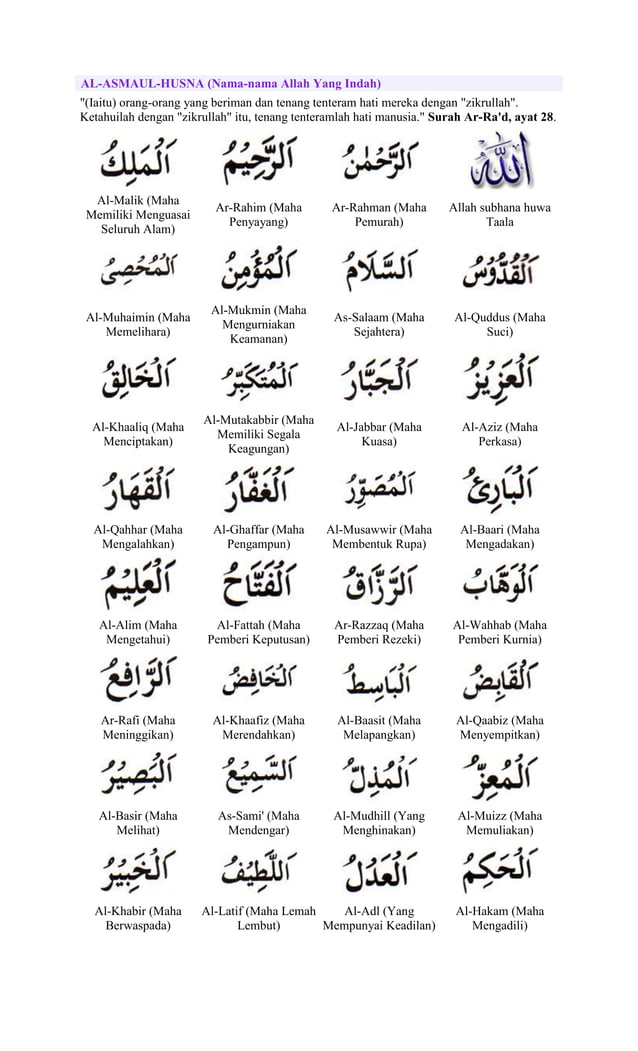 AL-ASMAUL-HUSNA (Nama-nama Allah Yang Indah)
"(Iaitu) orang-orang yang beriman dan tenang tenteram hati mereka dengan "zikrullah".
Ketahuilah dengan "zikrullah" itu, tenang tenteramlah hati manusia." Surah Ar-Ra'd, ayat 28.
اللّٰه
Allah subhana huwa
Taala
اَلرَّحْمٰنُ
Ar-Rahman (Maha
Pemurah)
اَلرَّحِيْمُ
Ar-Rahim (Maha
Penyayang)
اَلْمَلِكُ
Al-Malik (Maha
Memiliki Menguasai
Seluruh Alam)
اَلْقُدُّوْسُ
Al-Quddus (Maha
Suci)
اَلسَّلَامُ
As-Salaam (Maha
Sejahtera)
اَلْمُؤْمِنُ
Al-Mukmin (Maha
Mengurniakan
Keamanan)
اَلْمُحْصِىُ
Al-Muhaimin (Maha
Memelihara)
اَلْعَزِيْزُ
Al-Aziz (Maha
Perkasa)
اَلْجَبَّارُ
Al-Jabbar (Maha
Kuasa)
اَلْمُتَكَبِّرُ
Al-Mutakabbir (Maha
Memiliki Segala
Keagungan)
اَلْخَالِقُ
Al-Khaaliq (Maha
Menciptakan)
اَلْبَارِئُ
Al-Baari (Maha
Mengadakan)
اَلْمُصَوِّرُ
Al-Musawwir (Maha
Membentuk Rupa)
اَلْغَفَّارُ
Al-Ghaffar (Maha
Pengampun)
اَلْقَهَّارُ
Al-Qahhar (Maha
Mengalahkan)
اَلْوَهَّابُ
Al-Wahhab (Maha
Pemberi Kurnia)
اَلرَّزَّاقُ
Ar-Razzaq (Maha
Pemberi Rezeki)
اَلْفَتَّاحُ
Al-Fattah (Maha
Pemberi Keputusan)
اَلْعَلِيْمُ
Al-Alim (Maha
Mengetahui)
اَلْقَابِضُ
Al-Qaabiz (Maha
Menyempitkan)
اَلْبَاسِطُ
Al-Baasit (Maha
Melapangkan)
اَلْخَافِضُ
Al-Khaafiz (Maha
Merendahkan)
اَلرَّافِعُ
Ar-Rafi (Maha
Meninggikan)
اَلْمُعِزُّ
Al-Muizz (Maha
Memuliakan)
اَلْمُذِلُّ
Al-Mudhill (Yang
Menghinakan)
اَلسَّمِيْعُ
As-Sami' (Maha
Mendengar)
اَلْبَصِيْرُ
Al-Basir (Maha
Melihat)
اَلْحَكَمُ
Al-Hakam (Maha
Mengadili)
اَلْعَدْلُ
Al-Adl (Yang
Mempunyai Keadilan)
اَللَّطِيْفُ
Al-Latif (Maha Lemah
Lembut)
اَلْخَبِيْرُ
Al-Khabir (Maha
Berwaspada)